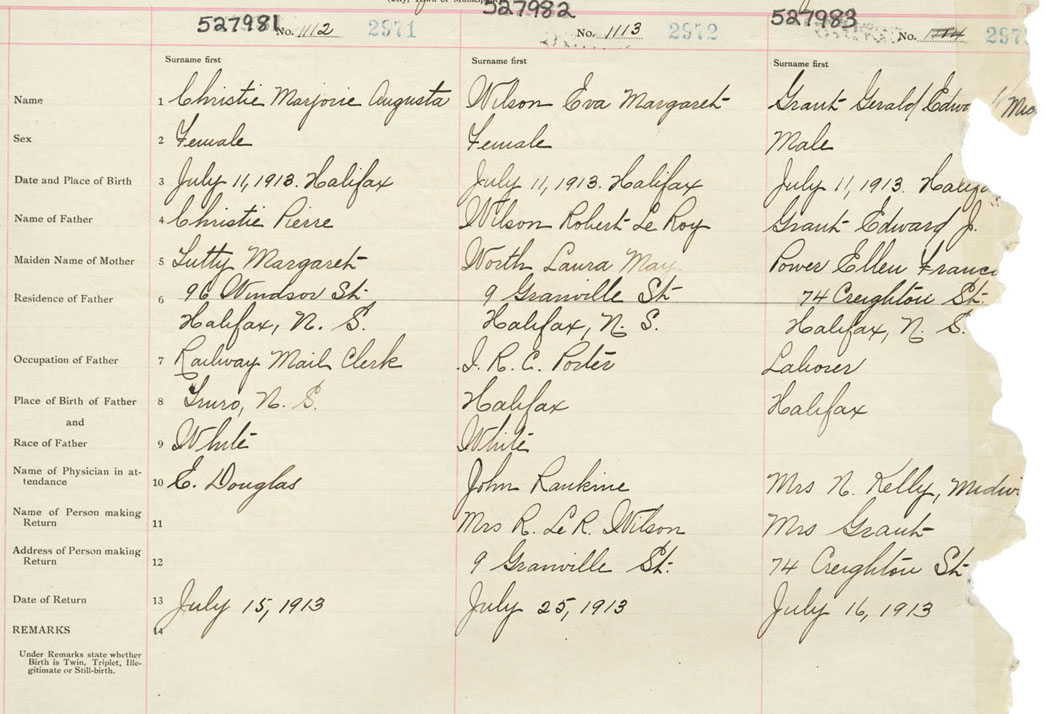 527981 527982 527983
No. 1112 2971 No. 1113 2972 No. 1114 297
Surname first Surname first Surname first
Name 1 Christie Marjorie Augusta Wilson Eva Margaret Grant Gerald Edw
Sex 2 Female Female Male
Date and Place of Birth 3 July 11, 1913. Halifax July 11, 1913. Halifax July 11, 1913. Halifa
Name of Father 4 Christie Pierre Wilson Robert Le Roy Grant Edward J.
Maiden Name of Mother 5 Tutty Margaret Worth Laura May Power Ellen Franc
Residence of Father 6 96 Windsor St. 9 Granville St. 74 Creighton St.
Halifax, N. S. Halifax, N. S. Halifax, N. S.
Occupation of Father 7 Railway Mail Clerk I. R. C. Porter Laborer
Place of Birth of Father 8 Truro, N. S. Halifax Halifax
and
Race of Father 9 White White
Name of Physician in at-
tendance 10 E. Douglas John Rankine Mrs N. Kelly, Midwi
Name of Person making
Return 11 Mrs R. Le R. Wilson Mrs Grant
Address of Person making
Return 12 9 Granville St. 74 Creighton St.
Date of Return 13 July 15, 1913 July 25, 1913 July 16, 1913
REMARKS 14
Under Remarks state whether
Birth is Twin, Triplet, Ille-
gitimate or Still-birth.